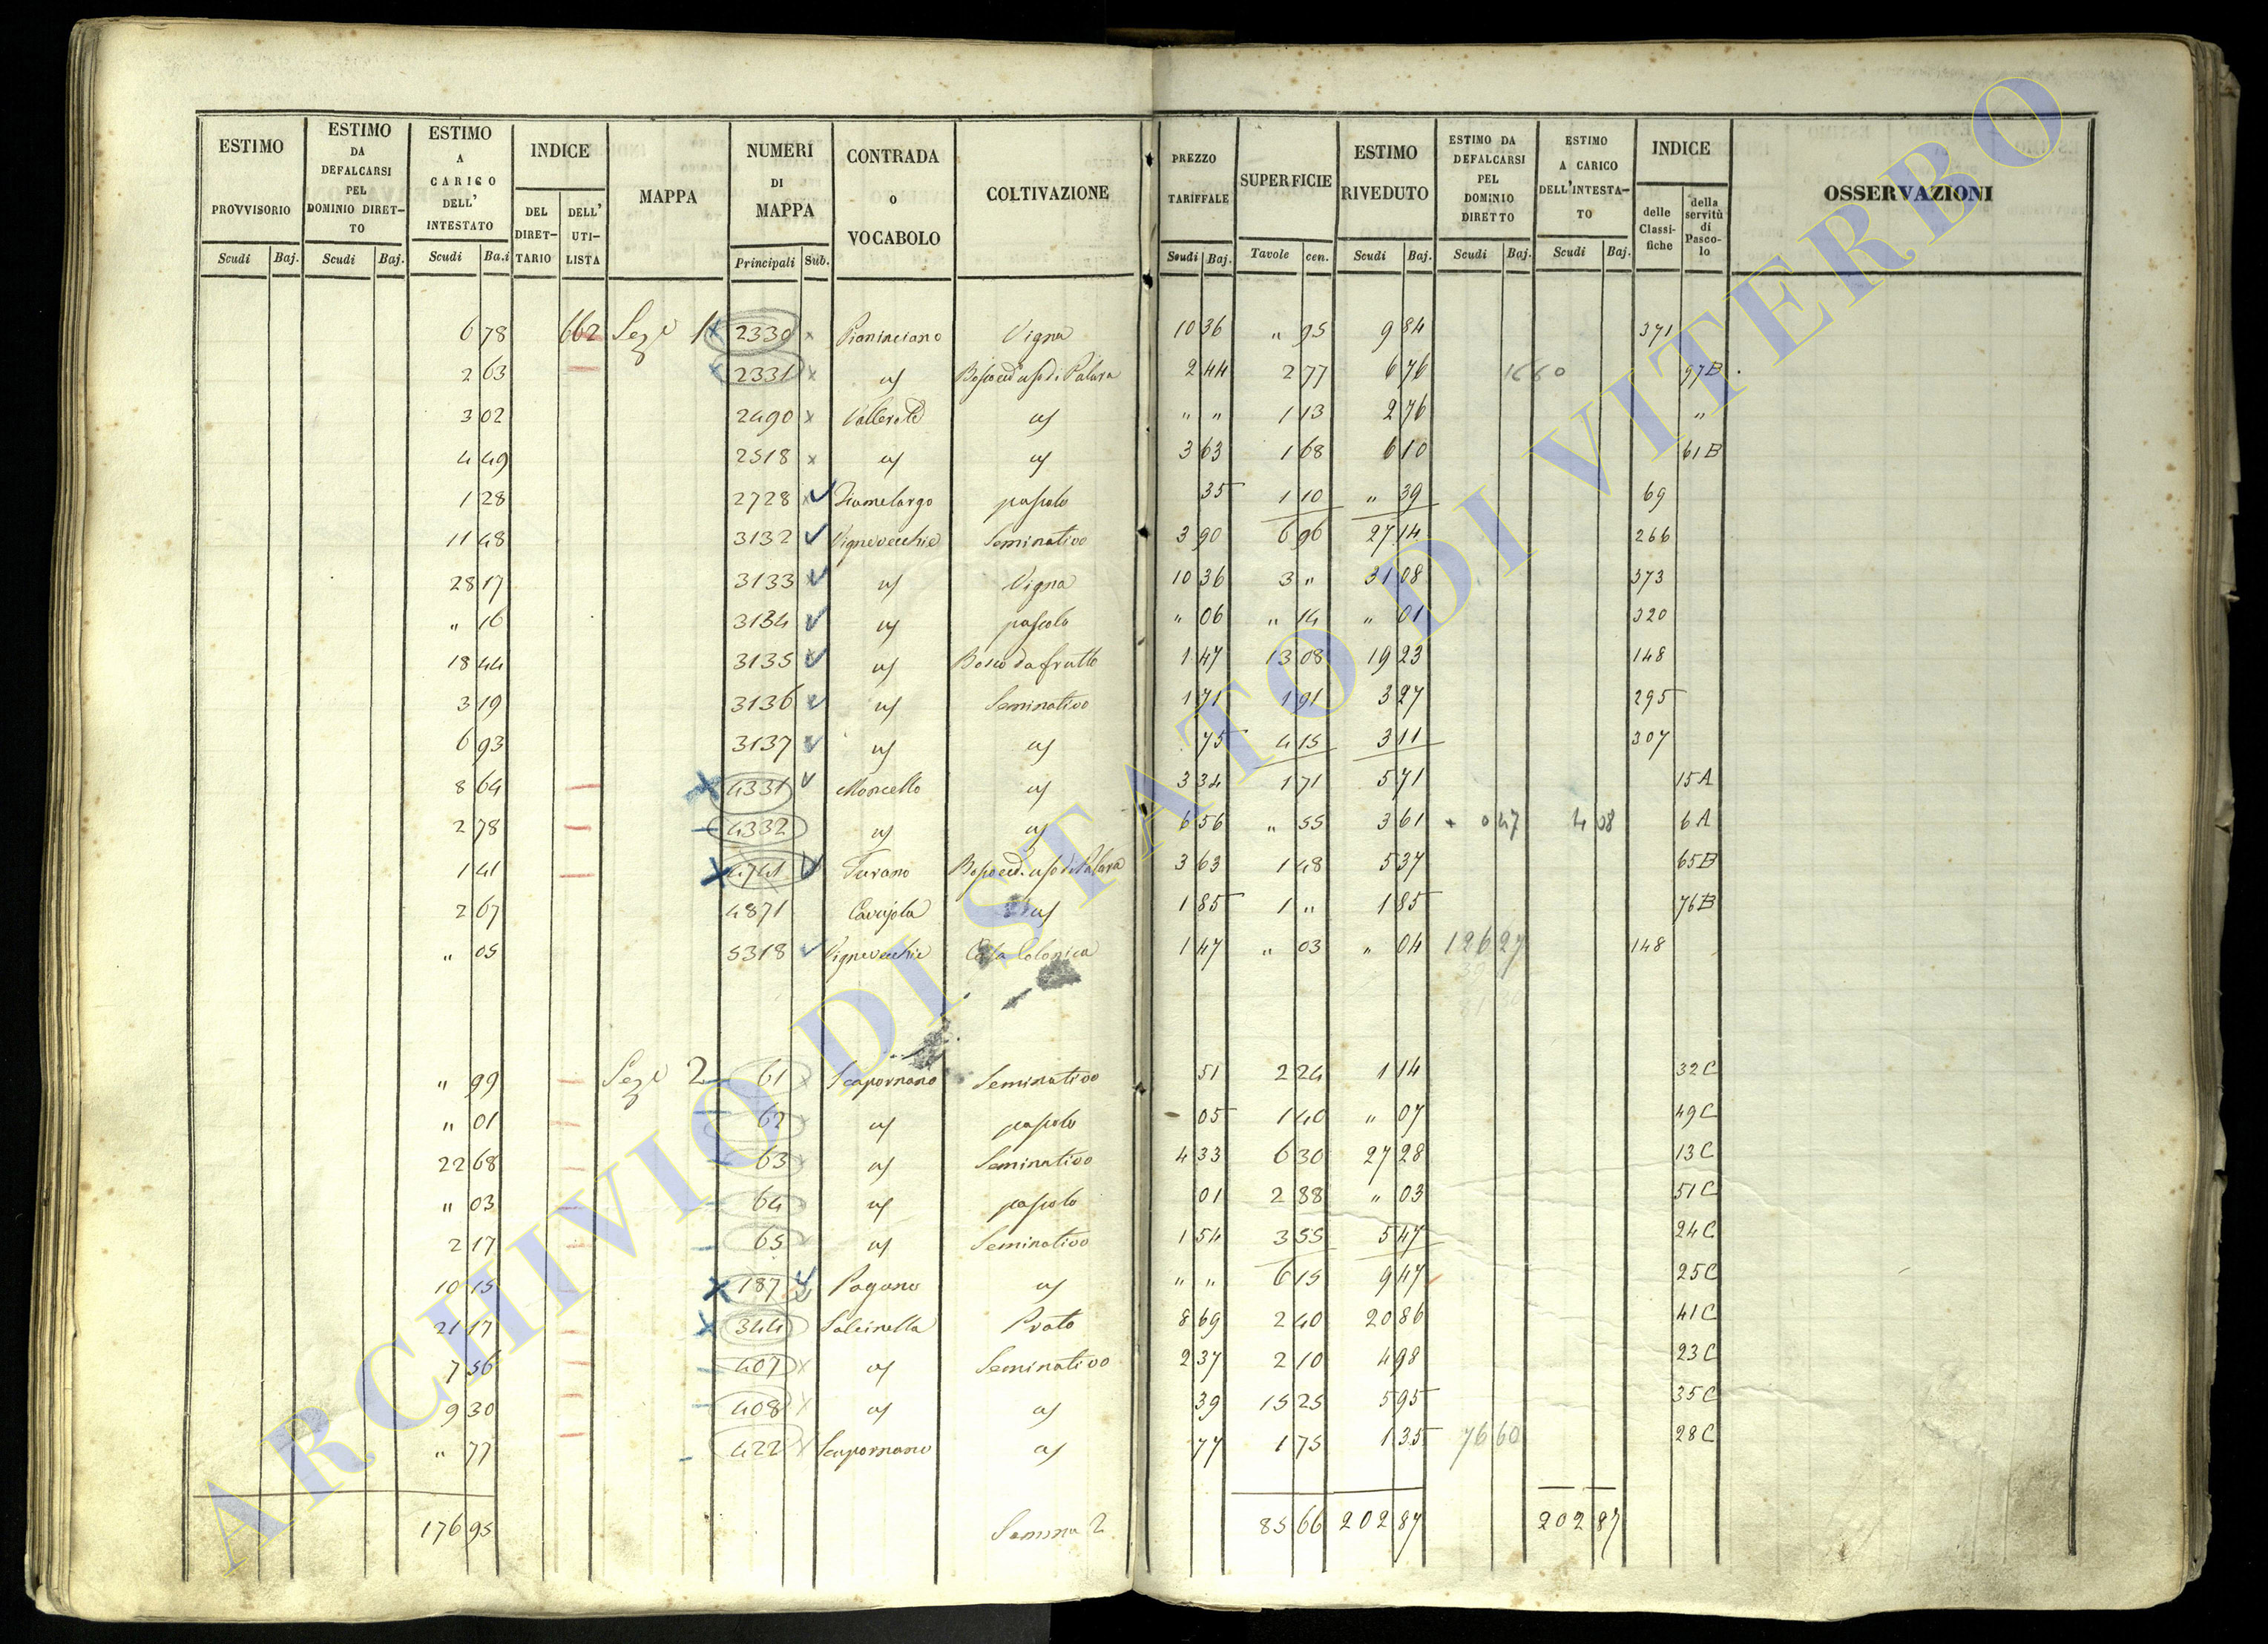 ESTIMO PROVVISORIO
ESTIMO DA DEFALCARSI PEL DOMINIO DIRET-TO
ESTIMO A CARICO DELL' INTESTATO
INDICE
DEL DIRET-TARIO
DELL' UTI-LISTA
MAPPA
NUMERI DI MAPPA
CONTRADA O VOCABOLO
COLTIVAZIONE
PREZZO TARIFFALE
SUPERFICIE
ESTIMO RIVEDUTO
ESTIMO DA DEFALCARSI PEL DOMINIO DIRETTO
ESTIMO A CARICO DELL'INTESTA-TO
INDICE
delle Classi-fiche
della servitù di Pasco-lo
OSSERVAZIONI
Scudi Baj. Scudi Baj. Scudi Ba.i Principali Sub. Scudi Baj. Tavole cen. Scudi Baj. Scudi Baj. Scudi Baj.
6 78 662 Sez.e 1 2330 Vigna 10 36 " 95 9 84 371
2 63 2331 us Bosco ced. uso di Palara 2 44 2 77 6 76 1660 97B
3 02 2490 us " " 1 13 2 76 "
4 49 2518 us us 3 63 1 68 6 10 61B
1 28 2728 Fiumelargo pascolo 35 1 10 " 39 69
11 48 3132 Vignevecchie Seminativo 3 90 6 96 27 14 266
28 17 3133 us Vigna 10 36 3 " 31 08 373
" 16 3134 us pascolo " 06 " 14 " 01 320
18 44 3135 us Bosco da frutto 1 47 13 08 19 23 148
3 19 3136 us Seminativo 1 71 1 91 3 27 295
6 93 3137 us us 75 4 15 3 11 307
8 64 4331 Moncello us 3 34 1 71 5 71 15A
2 78 4332 us us 6 56 " 55 3 61 0 47 4 08 6A
1 41 4741 Turano Bosco ced. uso di Palara 3 63 1 48 5 37 65B
2 67 4871 Cavajola us 1 85 1 " 1 85 76B
" 05 5318 Vignevecchie Casa Colonica 1 47 " 03 " 04 126 27 148
" 99 Sez.e 2 61 Scapornano Seminativo 51 2 24 1 14 32C
" 01 62 us pascolo 05 1 40 " 07 49C
22 68 63 us Seminativo 4 33 6 30 27 28 13C
" 03 64 us pascolo 01 2 88 " 03 51C
2 17 65 us Seminativo 1 54 3 55 5 47 24C
10 15 187 Pagano us " " 6 15 9 47 25C
21 17 344 Salcinella Prato 8 69 2 40 20 86 41C
7 56 407 us Seminativo 2 37 2 10 4 98 23C
9 30 408 us us 39 15 25 5 95 35C
" 77 422 Scapornano us 77 1 75 1 35 76 60 28C
176 95 Somma 2 85 66 202 87 202 87
ARCHIVIO DI STATO DI VITERBO